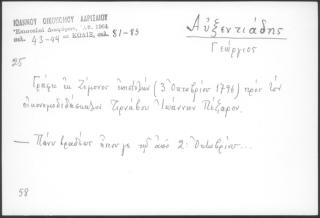 ΙΩΑΝΝΟΥ ΟΙΚΟΝΟΜΟΥ ΛΑΡΙΣΑΙΟΥ
Ἐπιστολαὶ Διαφόρων, Ἀθ. 1964
σελ. 43-44 = ΚΩΔΙΞ, σελ. 81-83
Αὐξεντιάδης
Γεώργιος
25
Γράφει ἐκ Ζέμονος ἐπιστολὴν (3 Ὀκτωβρίου 1796) πρὸς τὸν
οἰκονομοδιδάσκαλον Τιρνάβου Ἰωάννην Πέζαρον.
— Πάνυ βραδέως τῇ ἀπὸ 2 Ὀκτωβρίου...
58